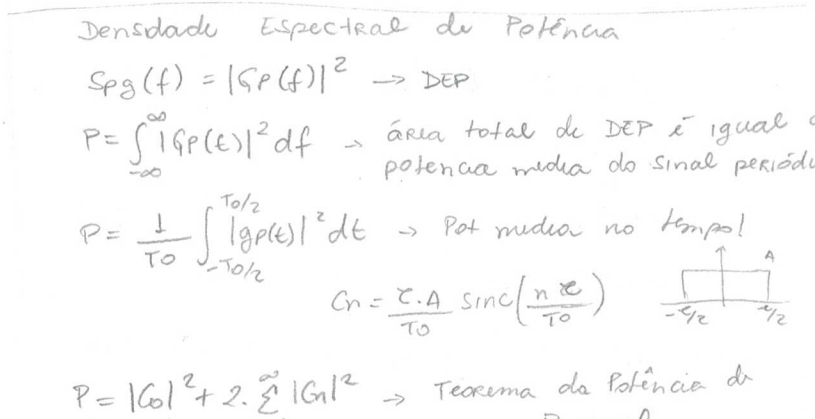 Densidade Espectral de Potência
Spg(f) = |Gp(f)|² → DEP
P = ∫_{-∞}^{∞} |Gp(t)|² df → área total de DEP é igual a
potencia media do sinal periódi
P = 1/T0 ∫_{-T0/2}^{T0/2} |gp(t)|² dt → Pot media no tempo!
Cn = τ.A/T0 sinc(nτ/T0)
A
-τ/2 τ/2
P = |C0|² + 2. Σ^{∞} |Cn|² → Teorema da Potência de